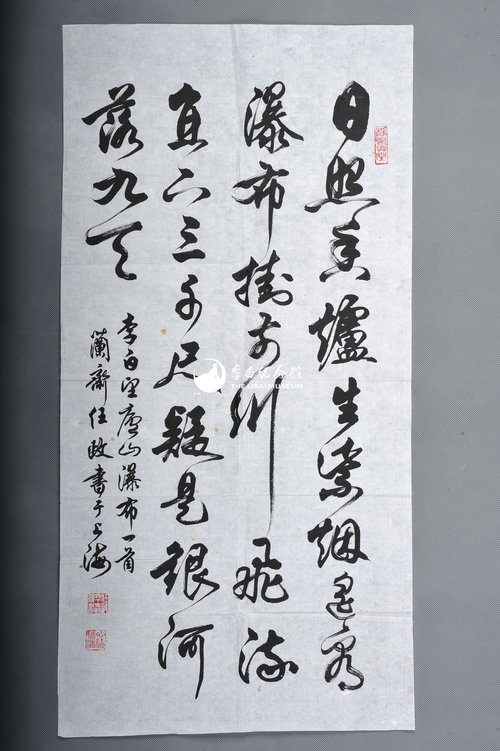 日照香爐生紫烟遙看
瀑布掛前川飛流
直下三千尺疑是銀河
落九天
李白望廬山瀑布一首
蘭齋任政書于上海
李白紀念館
THE LIBAI MUSEUM